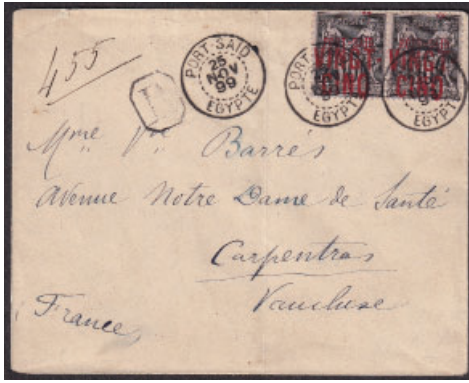 455
PORT-SAID
25
NOV
99
EGYPTE
R
VINGT
CINQ
VINGT
CINQ
PORT
EGYPTE
EGYPTE
Mme Vve Barrés
Avenue Notre Dame de Santé
Carpentras
Vaucluse
France